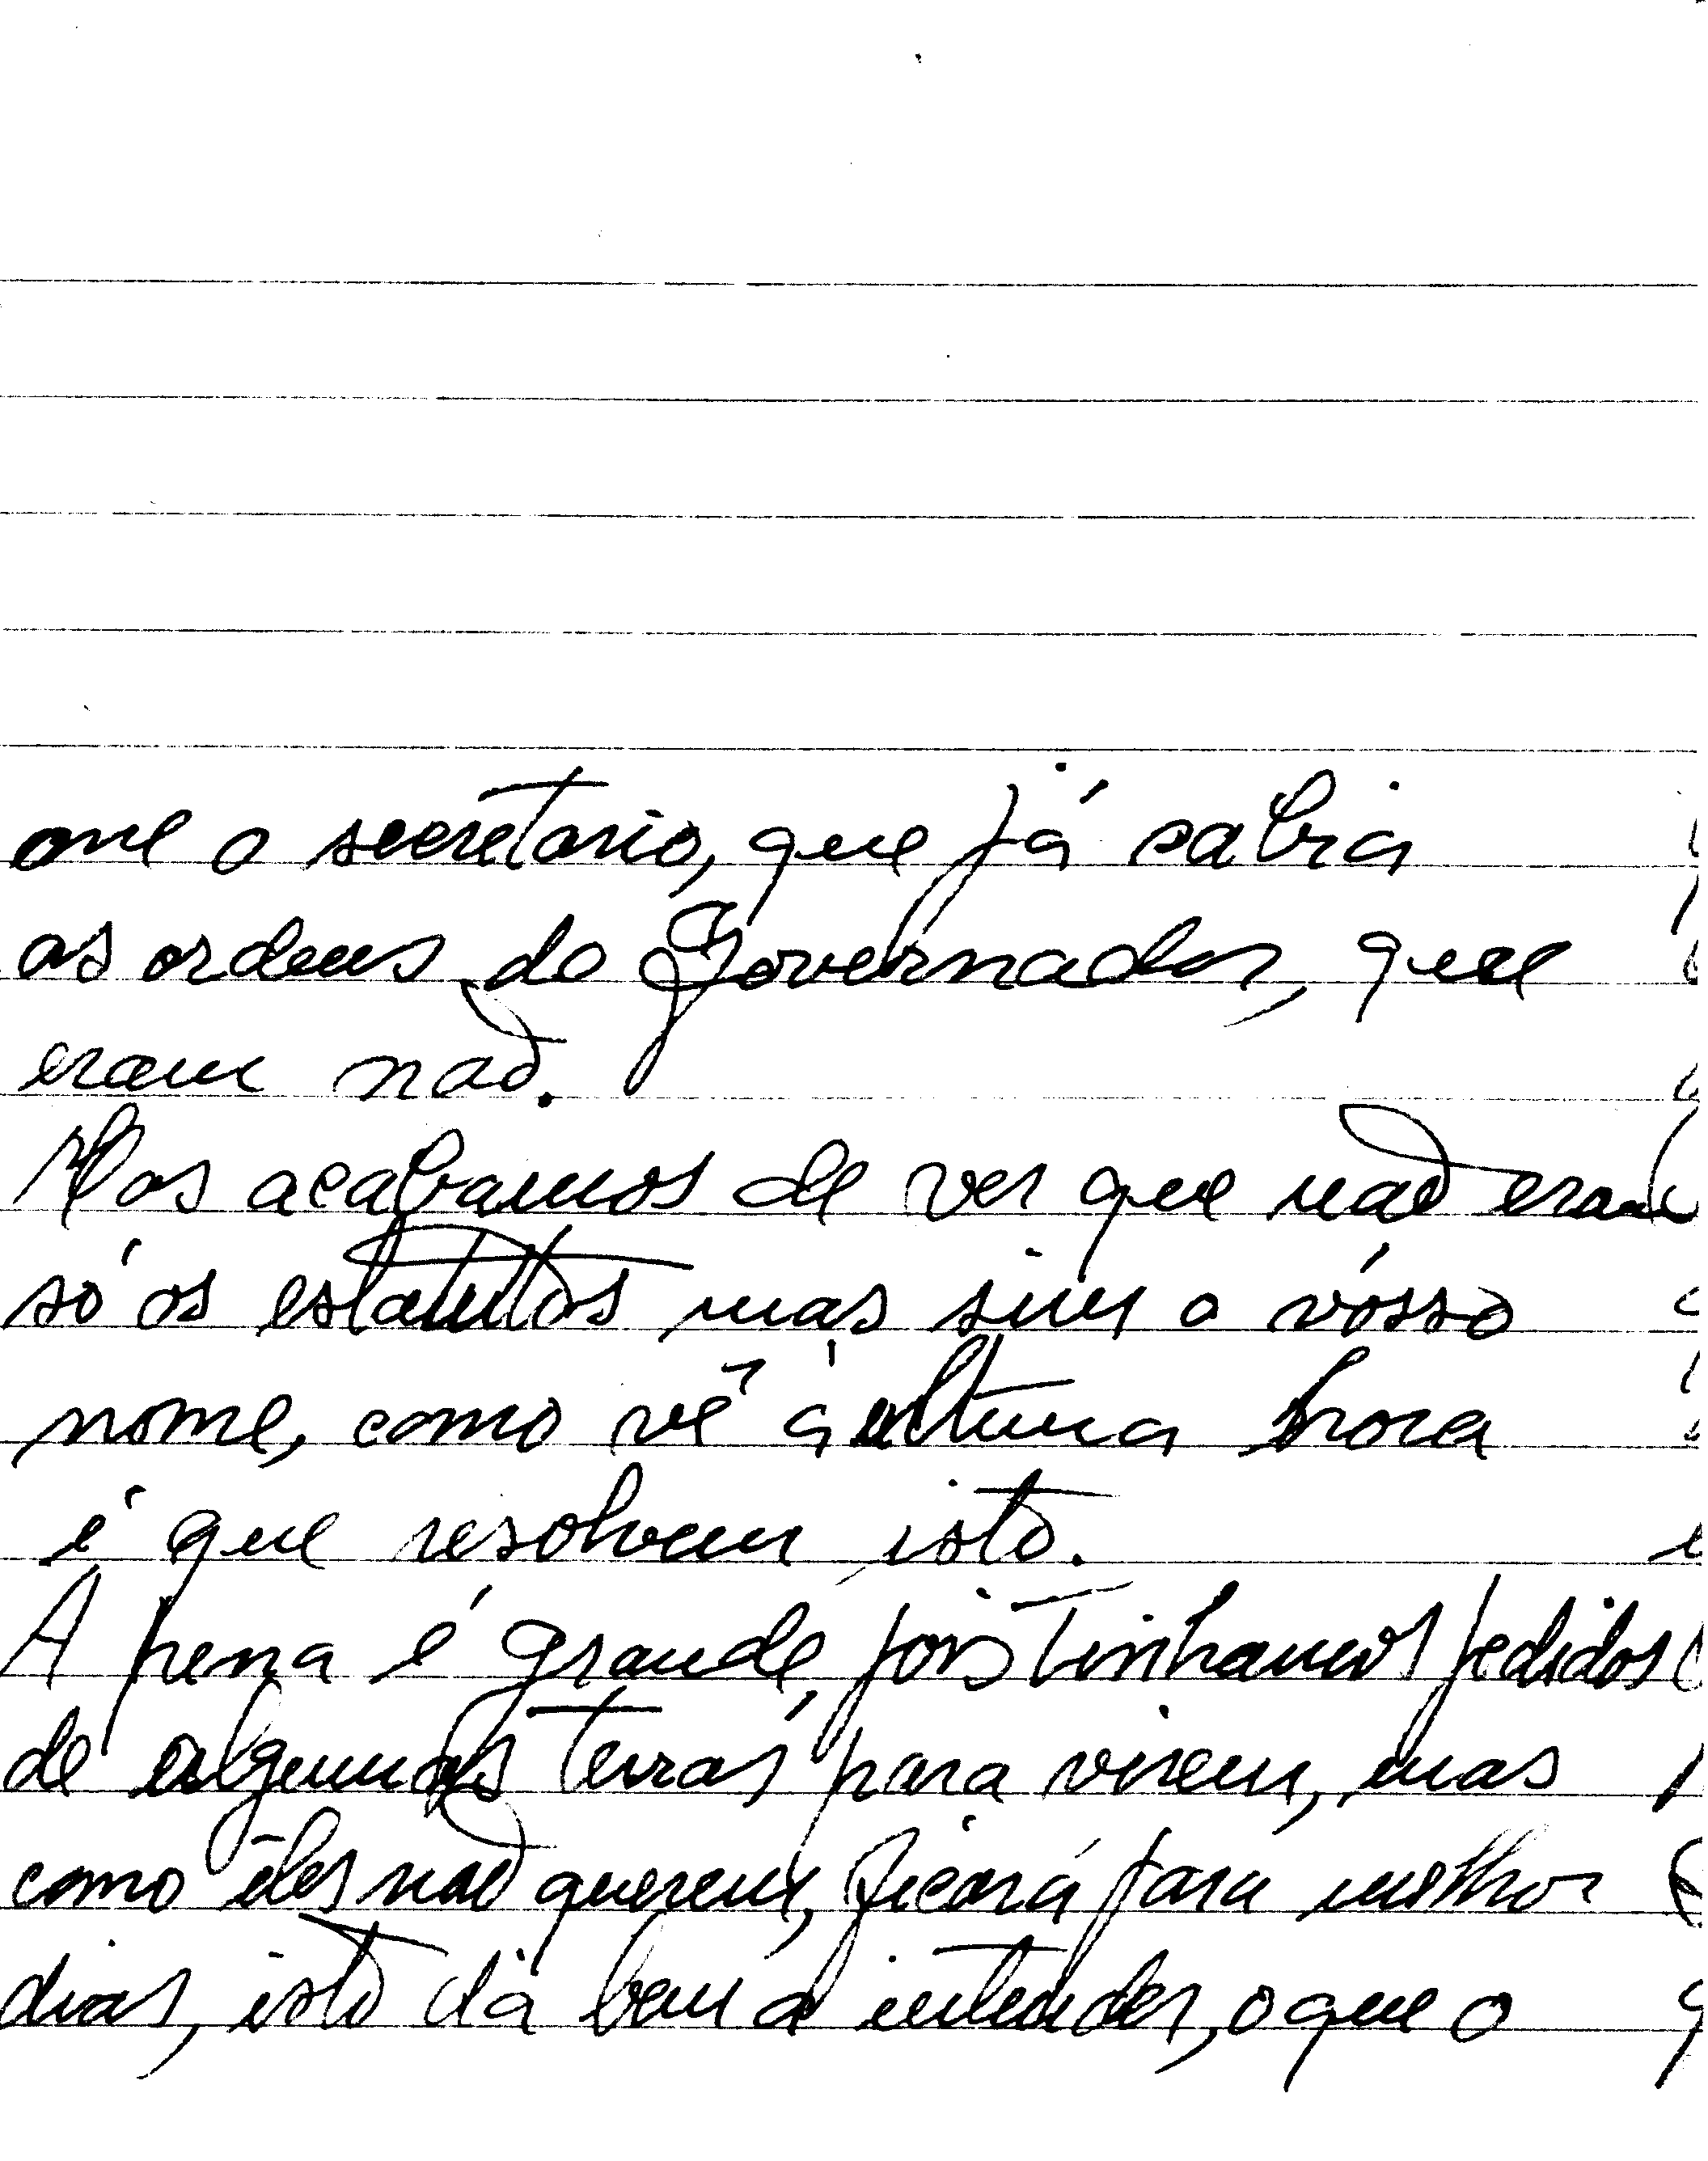 que o secretario, que já sabia
as ordens do Governador, que
eram não.
Mas acabamos de ver que não eram
só os estatutos mas sim o vósso
nome, como vê á ultima hora
é que resolvem isto.
A pena é grande, pois tinhamos pedidos
de algumas terras para virem, mas
como êles não querem, ficará para melhor
dias, isto dá bem a intender, o que o